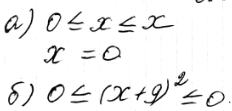 а) 0 ≤ x ≤ x
x = 0
б) 0 ≤ (x+y)² ≤ 0